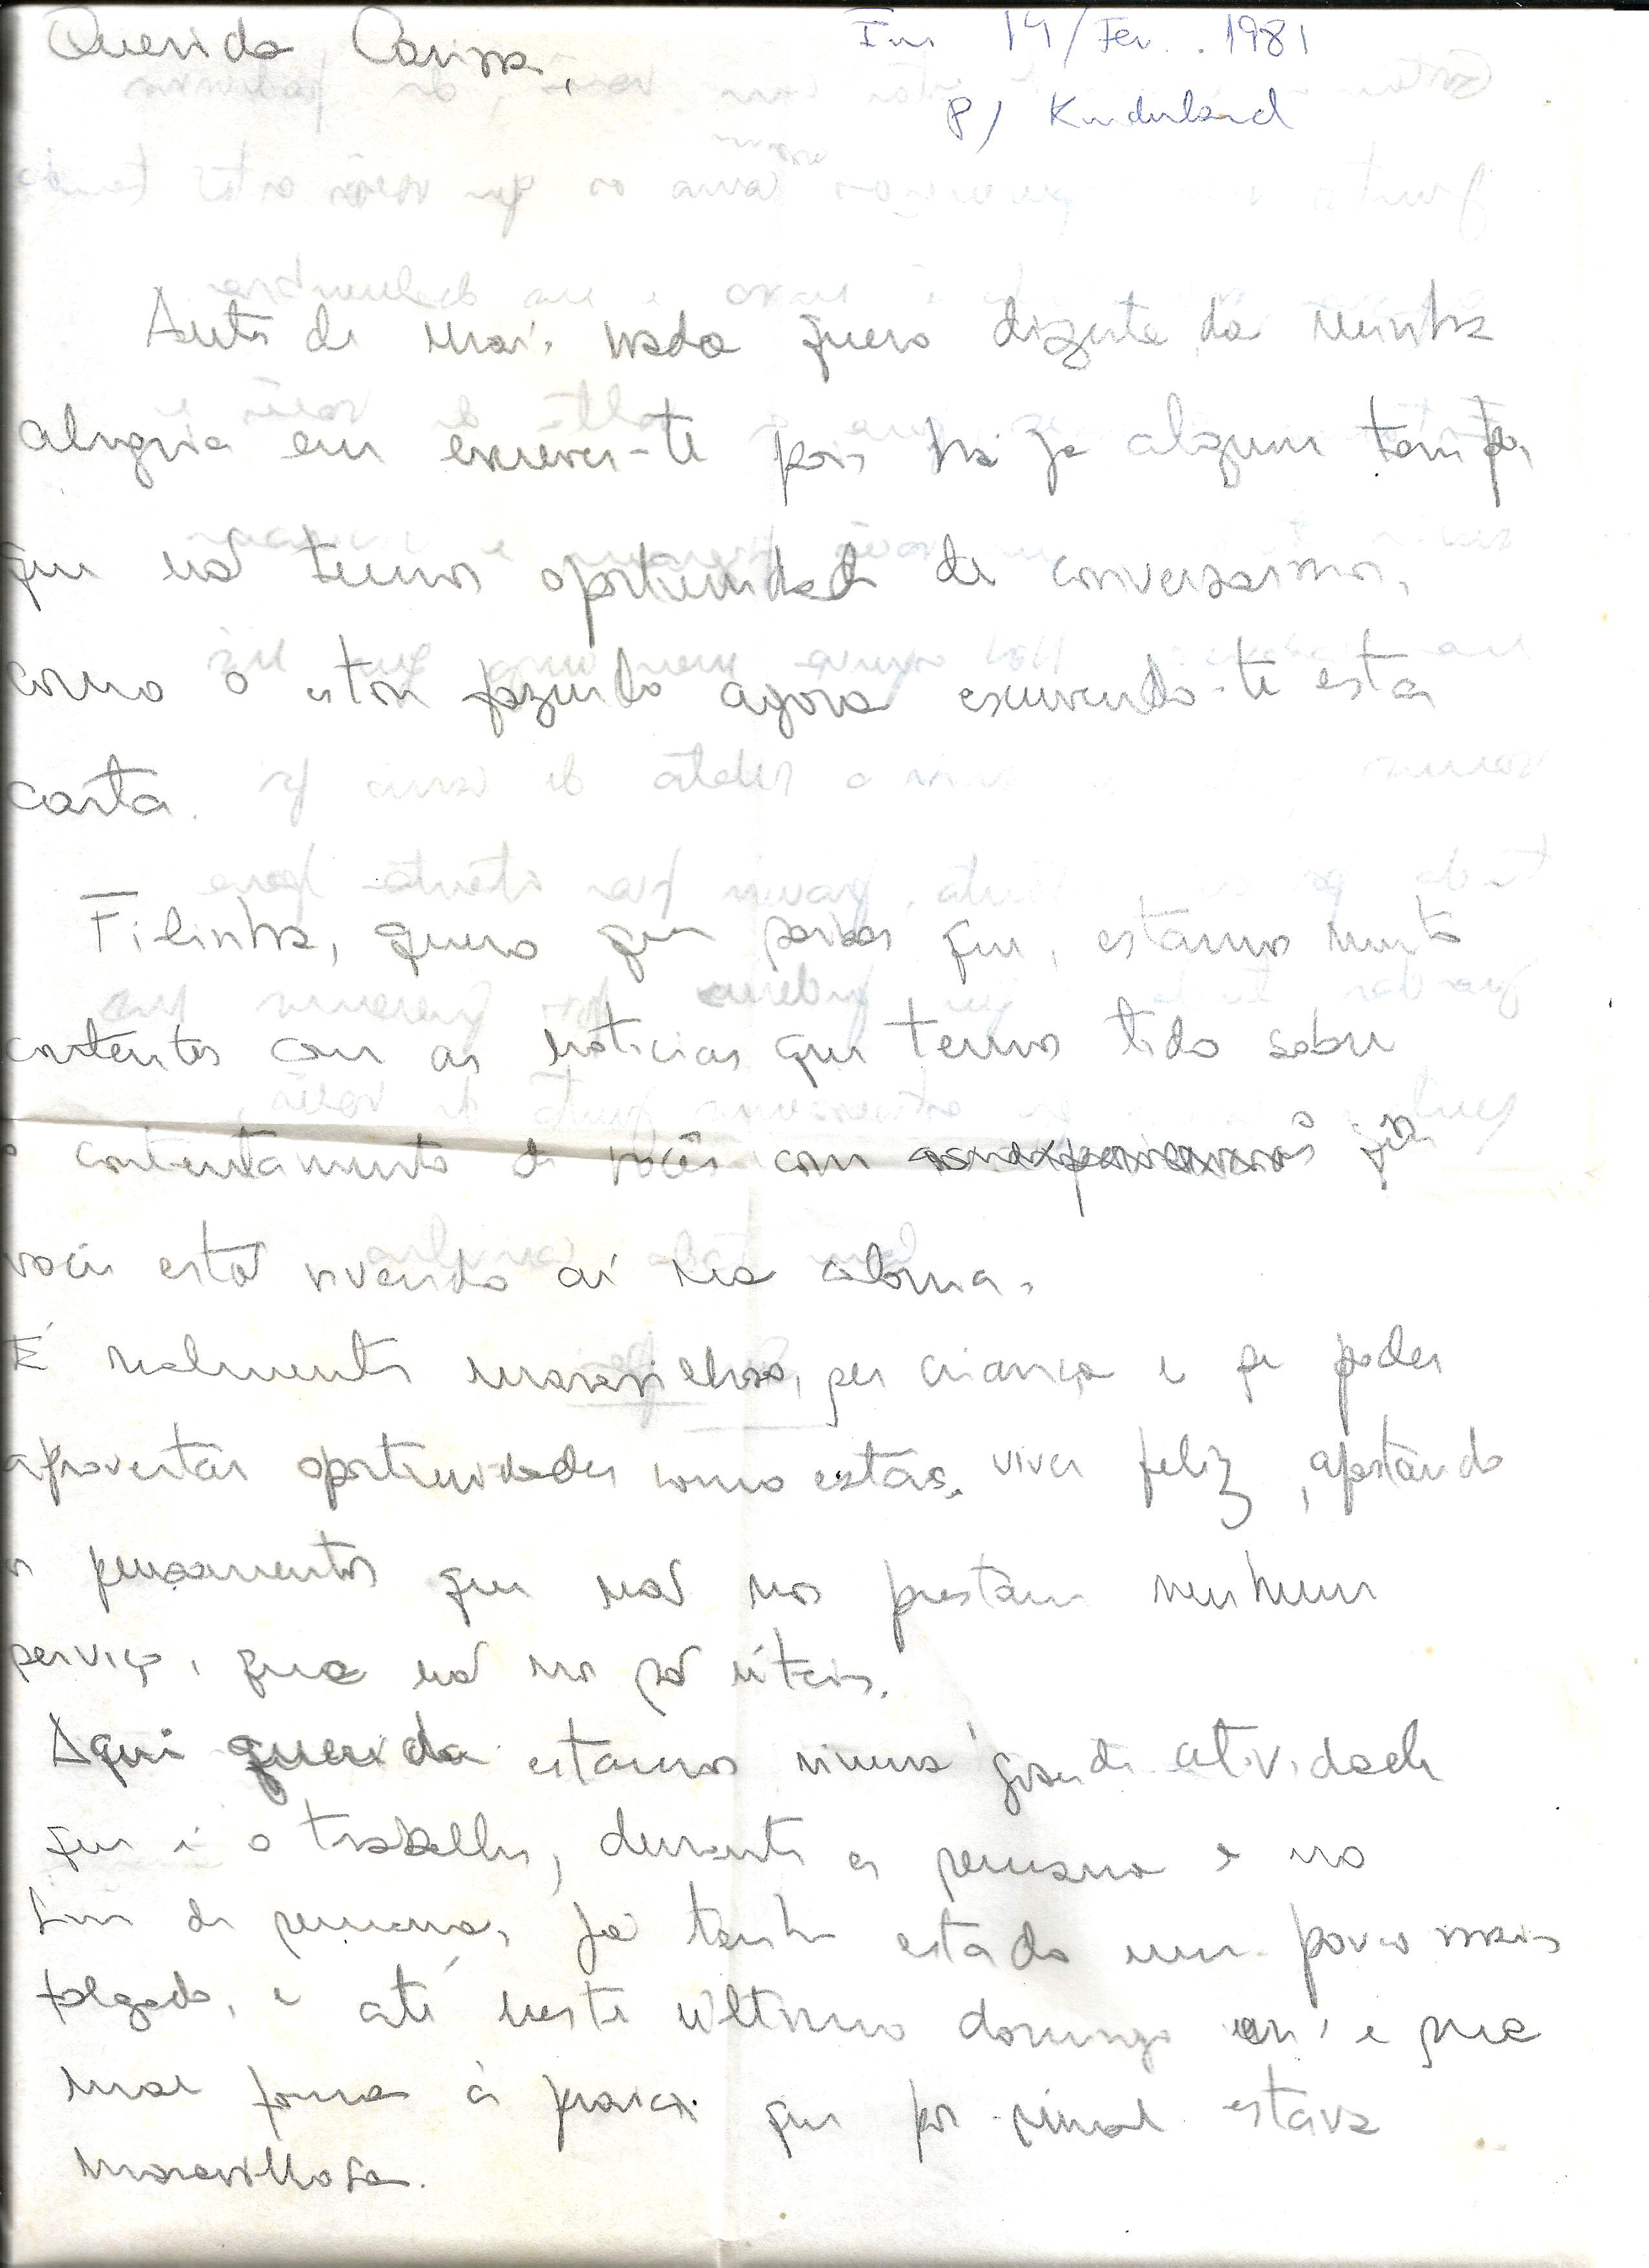 Querida Carissa,
Em 19/Fev. . 1981
P/ Kinderland
Antes de mais nada quero dizer-te da minha
alegria em escrever-te pois há já algum tempo
que não temos oportunidade de conversarmos,
como o estou fazendo agora escrevendo-te esta
carta.
Filinha, quero que saibas que, estamos muito
contentes com as noticias que temos tido sobre
o contentamento de vocês com o que
vocês estão vivendo aí na colonia.
É realmente maravilhoso, ser criança e se poder
aproveitar oportunidades como estas, viver feliz, afastando
os pensamentos que não nos prestam nenhum
serviço, que não nos são úteis.
Aqui querida estamos numa grande atividade
que é o trabalho, durante a semana e no
fim de semana, já tenho estado um pouco mais
folgado, e até neste último domingo eu e sua
mãe fomos à praia que por sinal estava
maravilhosa.